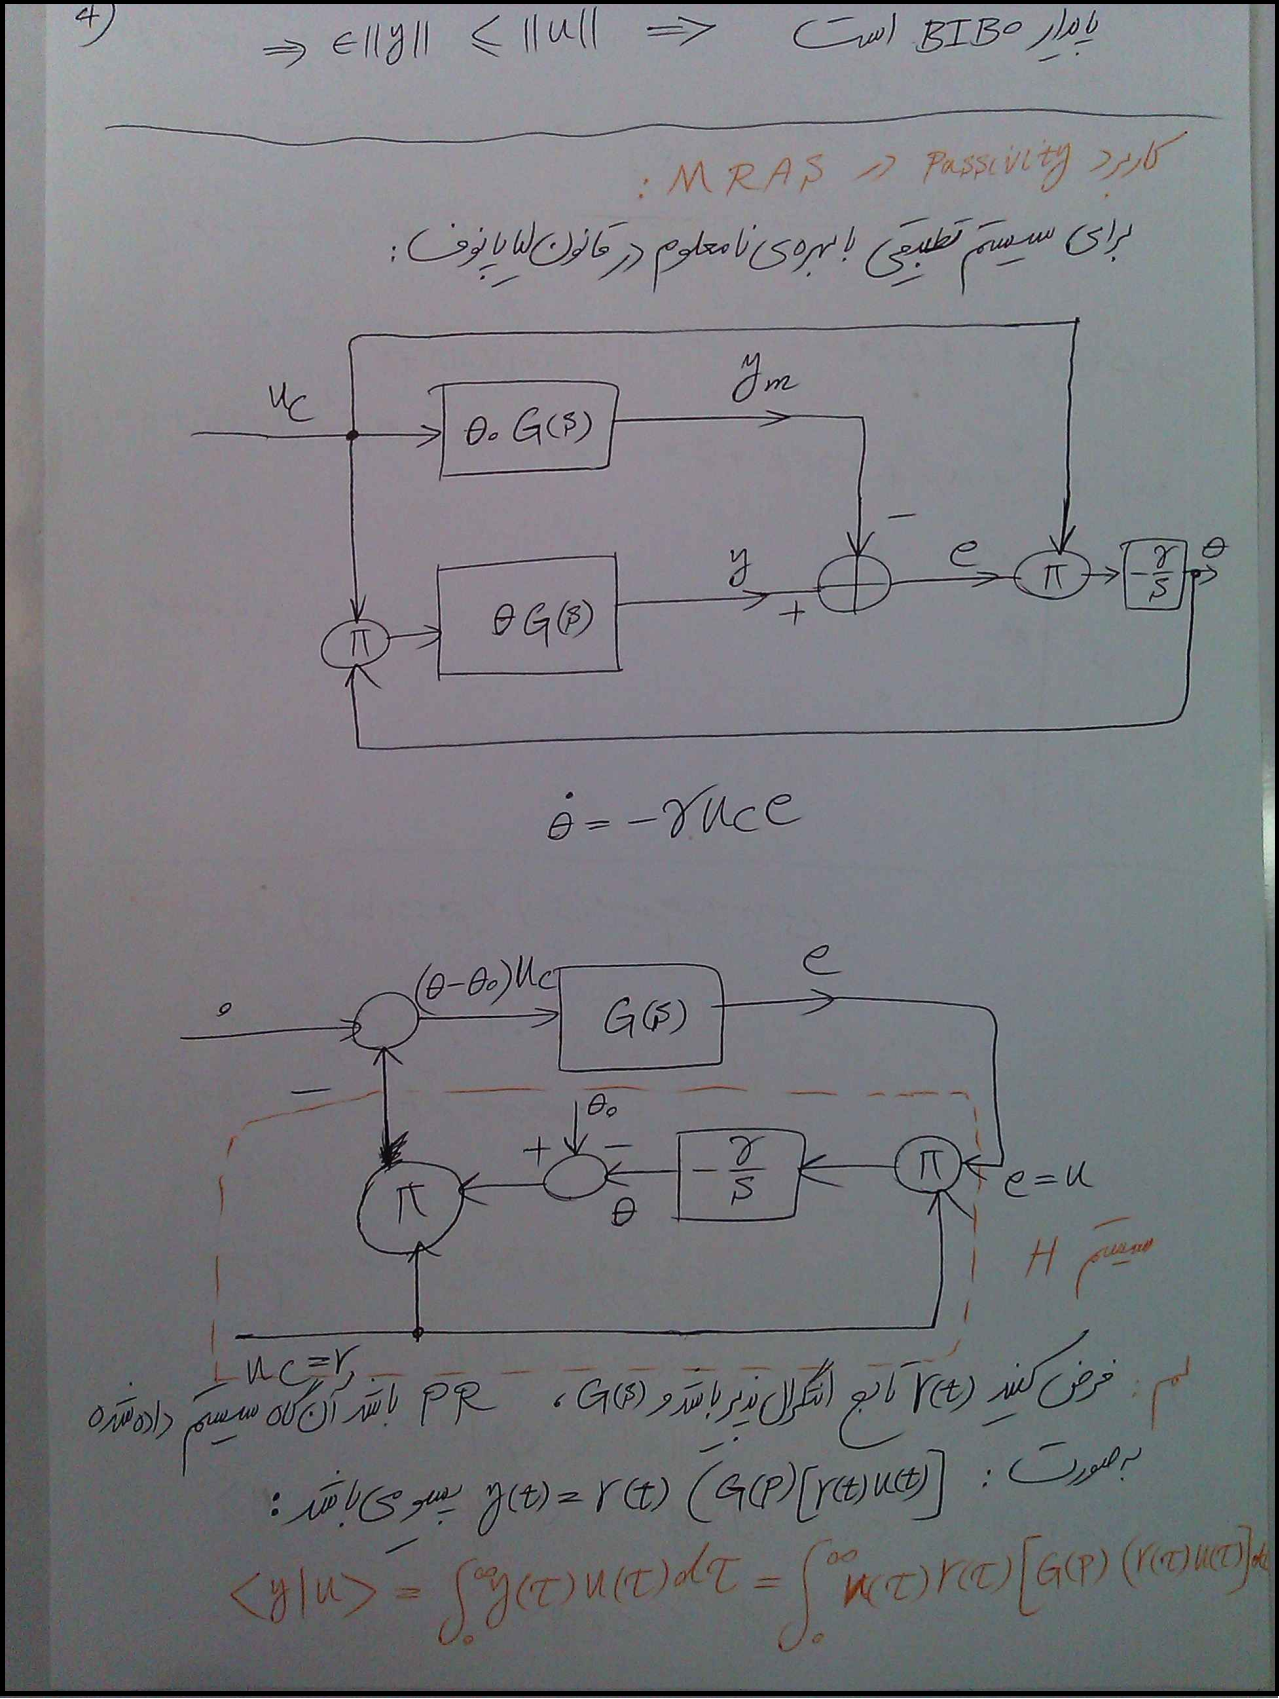 4)
⇒ ϵ||y|| ≤ ||u|| ⇒ پایدار BIBO است
کاربرد Passivity در MRAS :
برای سیستم تطبیقی با بهره‌ی نامعلوم در قانون لیاپانوف :
u_c
θ₀ G(s)
y_m
−
θ G(s)
y
+
e
π
−γ/s
θ
π
θ̇ = −γ u_c e
0
(θ−θ₀)u_c
G(s)
e
−
θ₀
+
−
π
θ
−γ/s
π
e = u
سیستم H
u_c = r
لم : فرض کنید r(t) تابع انتگرال پذیر باشد و G(s) ، PR باشد آن گاه سیستم داده شده
به صورت : y(t) = r(t) (G(p)[r(t)u(t)] پسیو می باشد :
<y|u> = ∫₀^∞ y(τ)u(τ)dτ = ∫₀^∞ u(τ)r(τ)[G(p)(r(τ)u(τ)]dτ